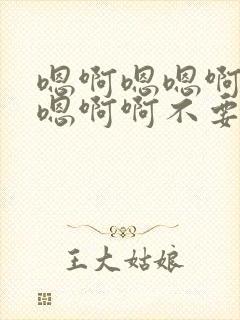 嗯啊嗯嗯啊
嗯啊啊不要
王大姑娘